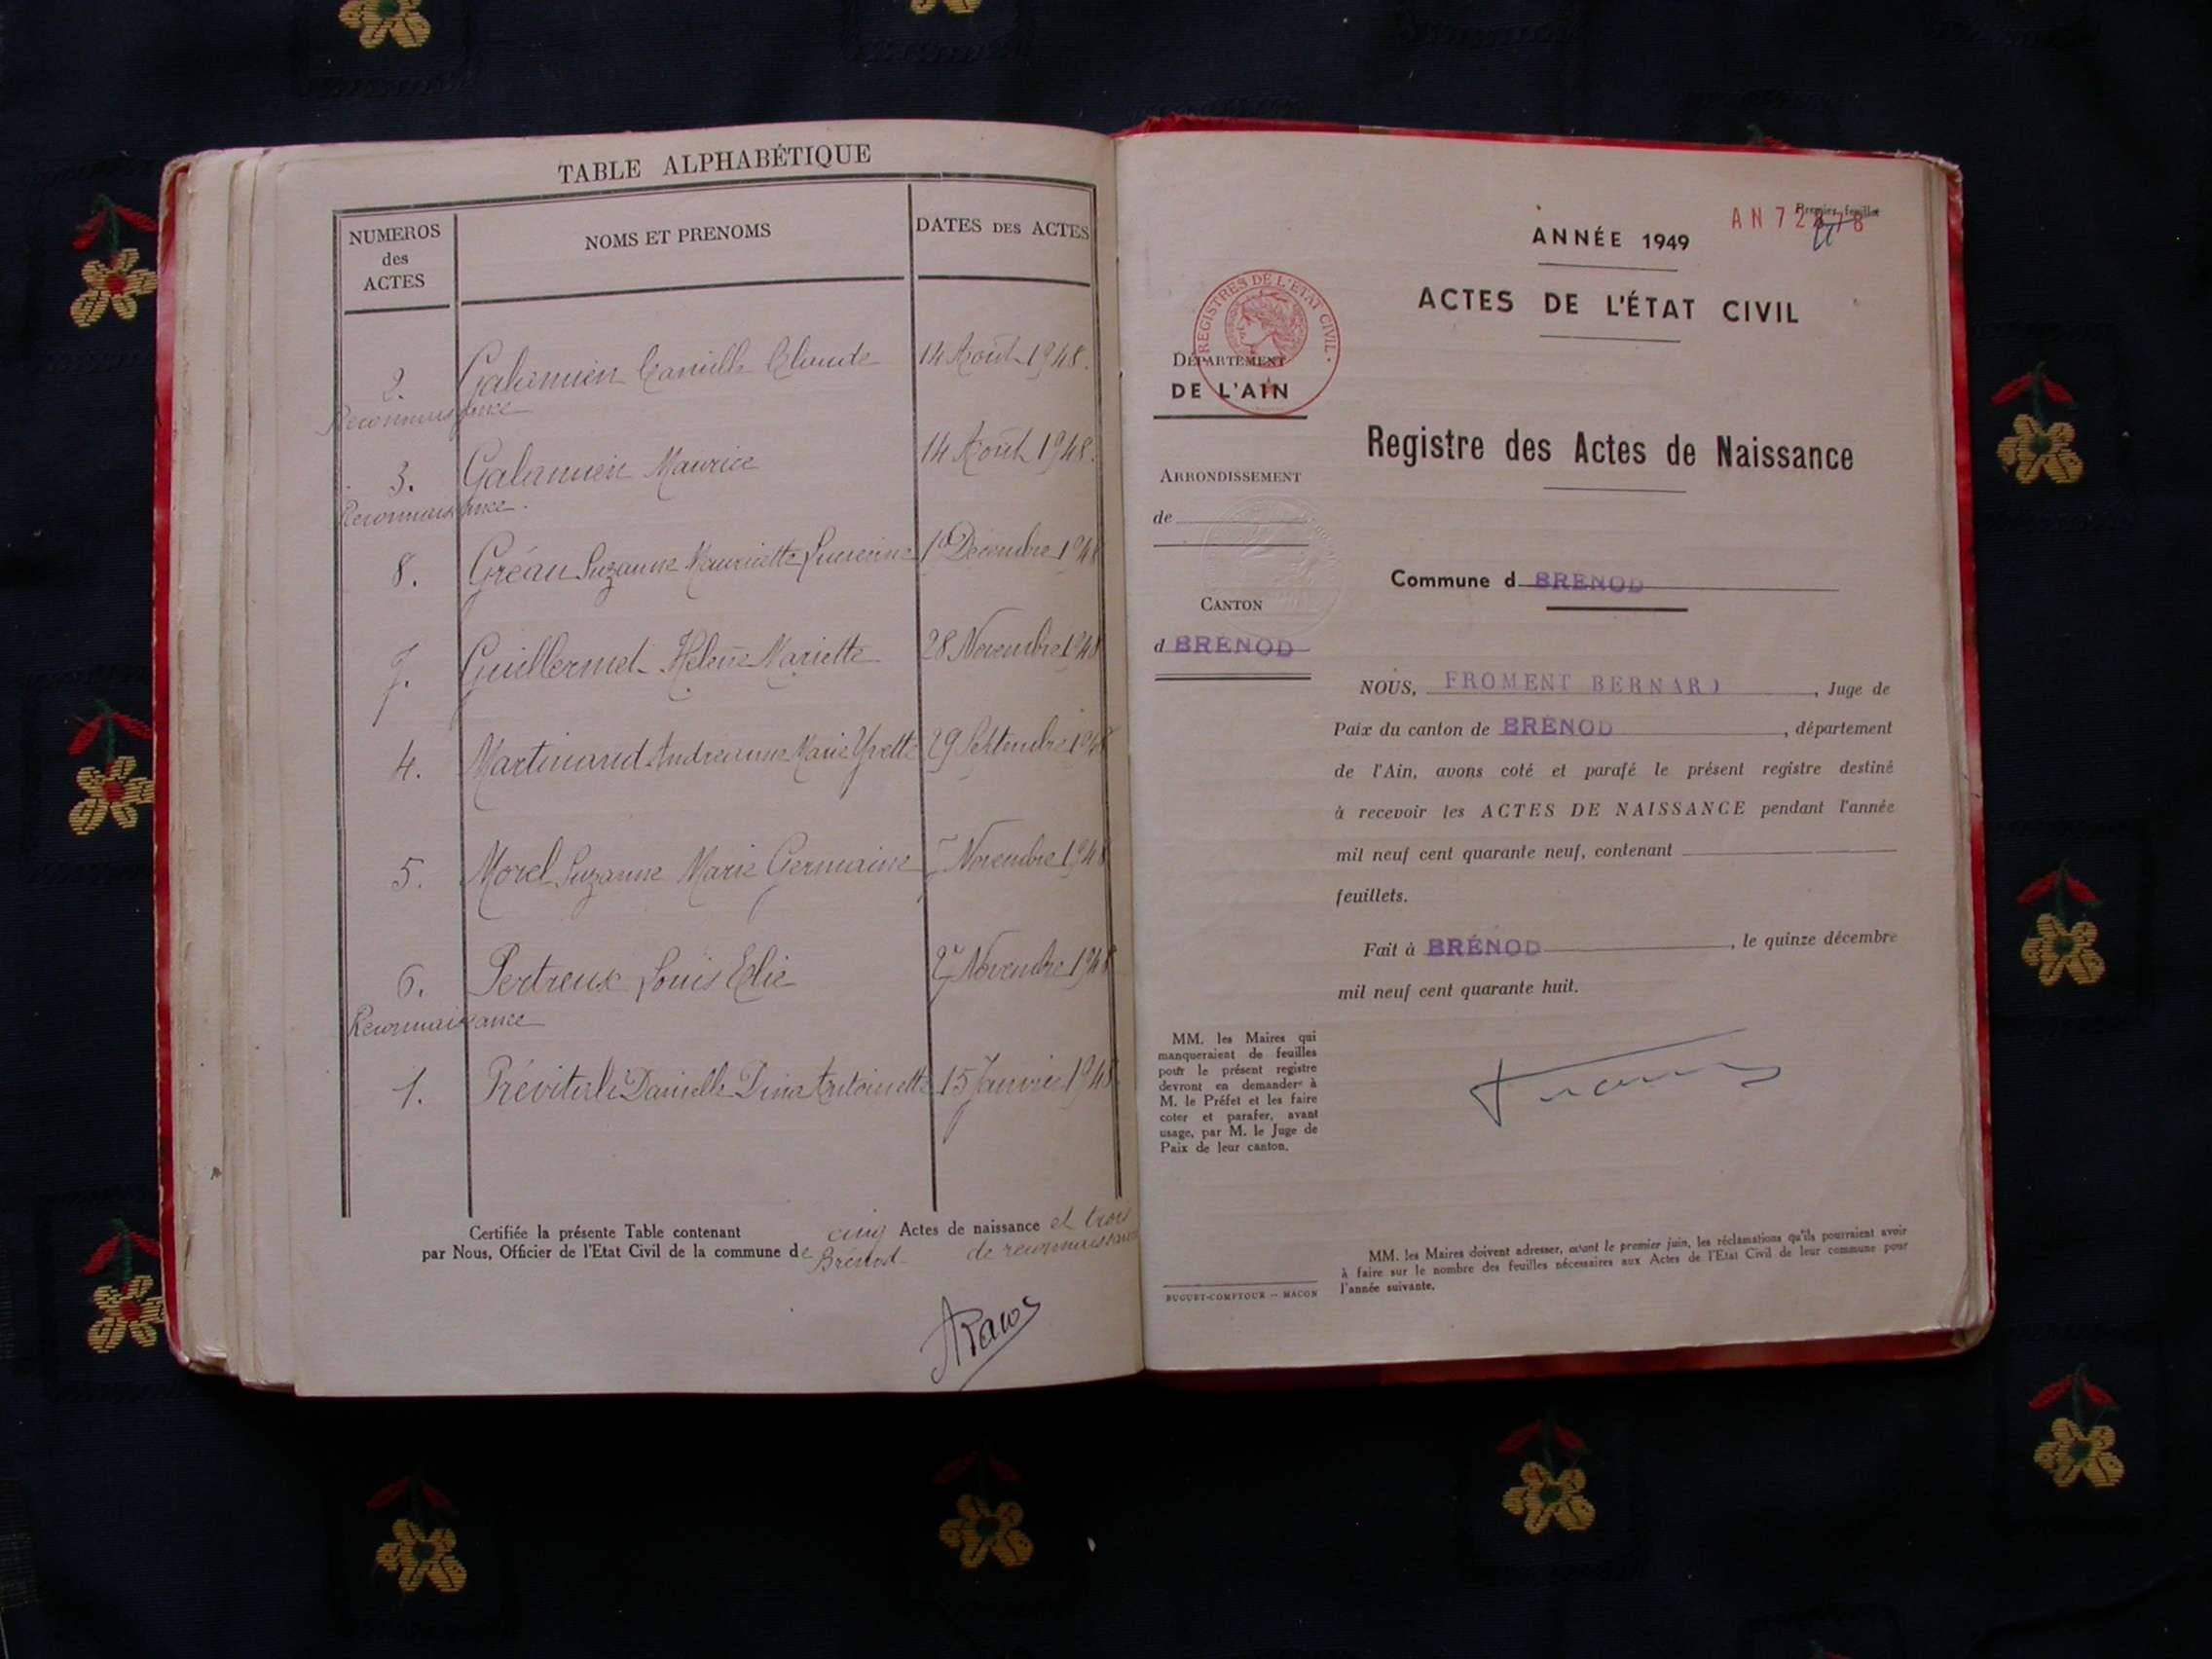 TABLE ALPHABÉTIQUE
NUMEROS
des
ACTES
NOMS ET PRENOMS
DATES DES ACTES
2. Galamien Camille Claude 14 Août 1948.
Reconnaissance
3. Galamien Maurice 14 Août 1948.
Reconnaissance.
8. Gréau Suzanne Mauricette 10 Décembre 1948
7. Guillermet Helène Mariette 28 Novembre 1948
4. Martinand Andréanne Marie Yvette 29 Septembre 1948
5. Morel Suzanne Marie Germaine Novembre 1948
6. Pertreux Louis Elie Novembre 1948
Reconnaissance
1. Danielle Dina Antoinette 15 Janvier 1948
Certifiée la présente Table contenant cinq Actes de naissance et trois
par Nous, Officier de l'Etat Civil de la commune de Brénod de reconnaissance
ANNÉE 1949
Premier feuillet
ACTES DE L'ÉTAT CIVIL
REGISTRES DE L'ETAT CIVIL
DÉPARTEMENT
DE L'AIN
Registre des Actes de Naissance
ARRONDISSEMENT
de
Commune d BRENOD
CANTON
d BRENOD
NOUS, FROMENT BERNARD, Juge de
Paix du canton de BRÉNOD, département
de l'Ain, avons coté et parafé le présent registre destiné
à recevoir les ACTES DE NAISSANCE pendant l'année
mil neuf cent quarante neuf, contenant
feuillets.
Fait à BRÉNOD, le quinze décembre
mil neuf cent quarante huit.
MM. les Maires qui
manqueraient de feuilles
pour le présent registre
devront en demander à
M. le Préfet et les faire
coter et parafer, avant
usage, par M. le Juge de
Paix de leur canton.
MM. les Maires doivent adresser, avant le premier juin, les réclamations qu'ils pourraient avoir
à faire sur le nombre des feuilles nécessaires aux Actes de l'Etat Civil de leur commune pour
l'année suivante.
BUGUET-COMPTOUR — MACON